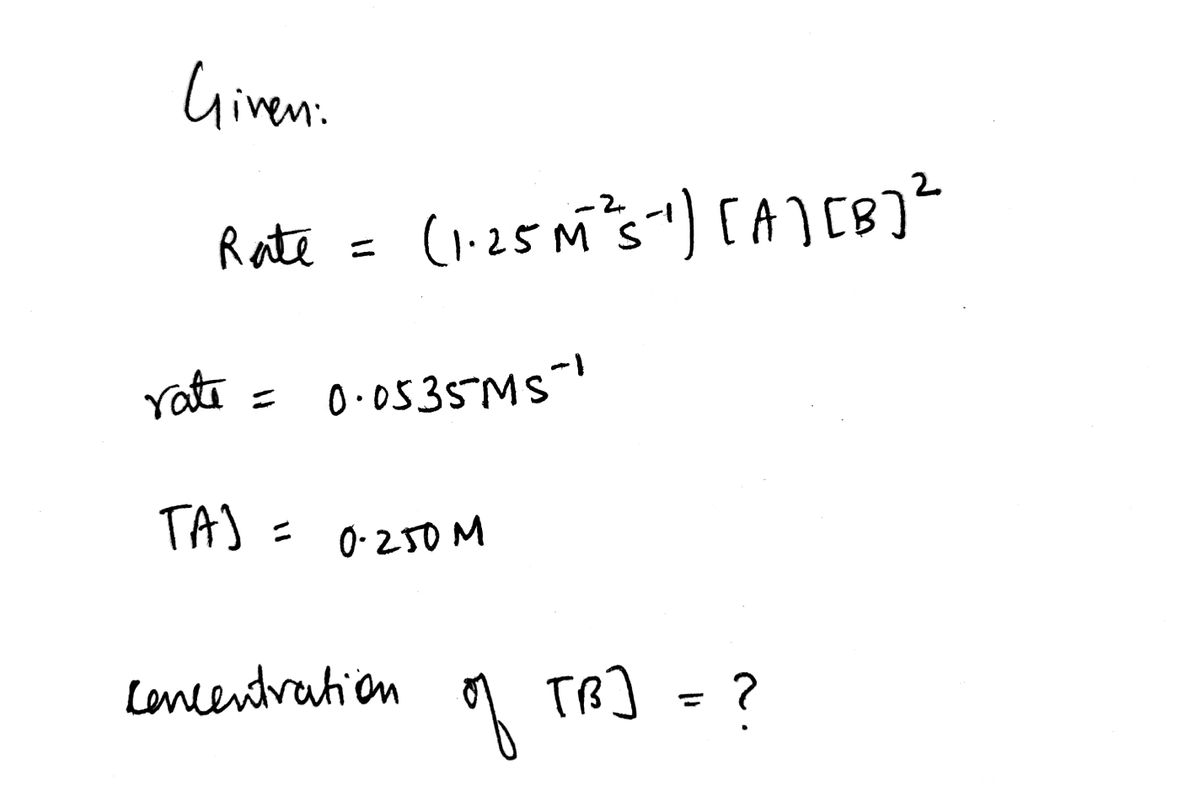 Given:
Rate = (1.25 M⁻²s⁻¹) [A][B]²
rate = 0.0535 M s⁻¹
[A] = 0.250 M
concentration of [B] = ?